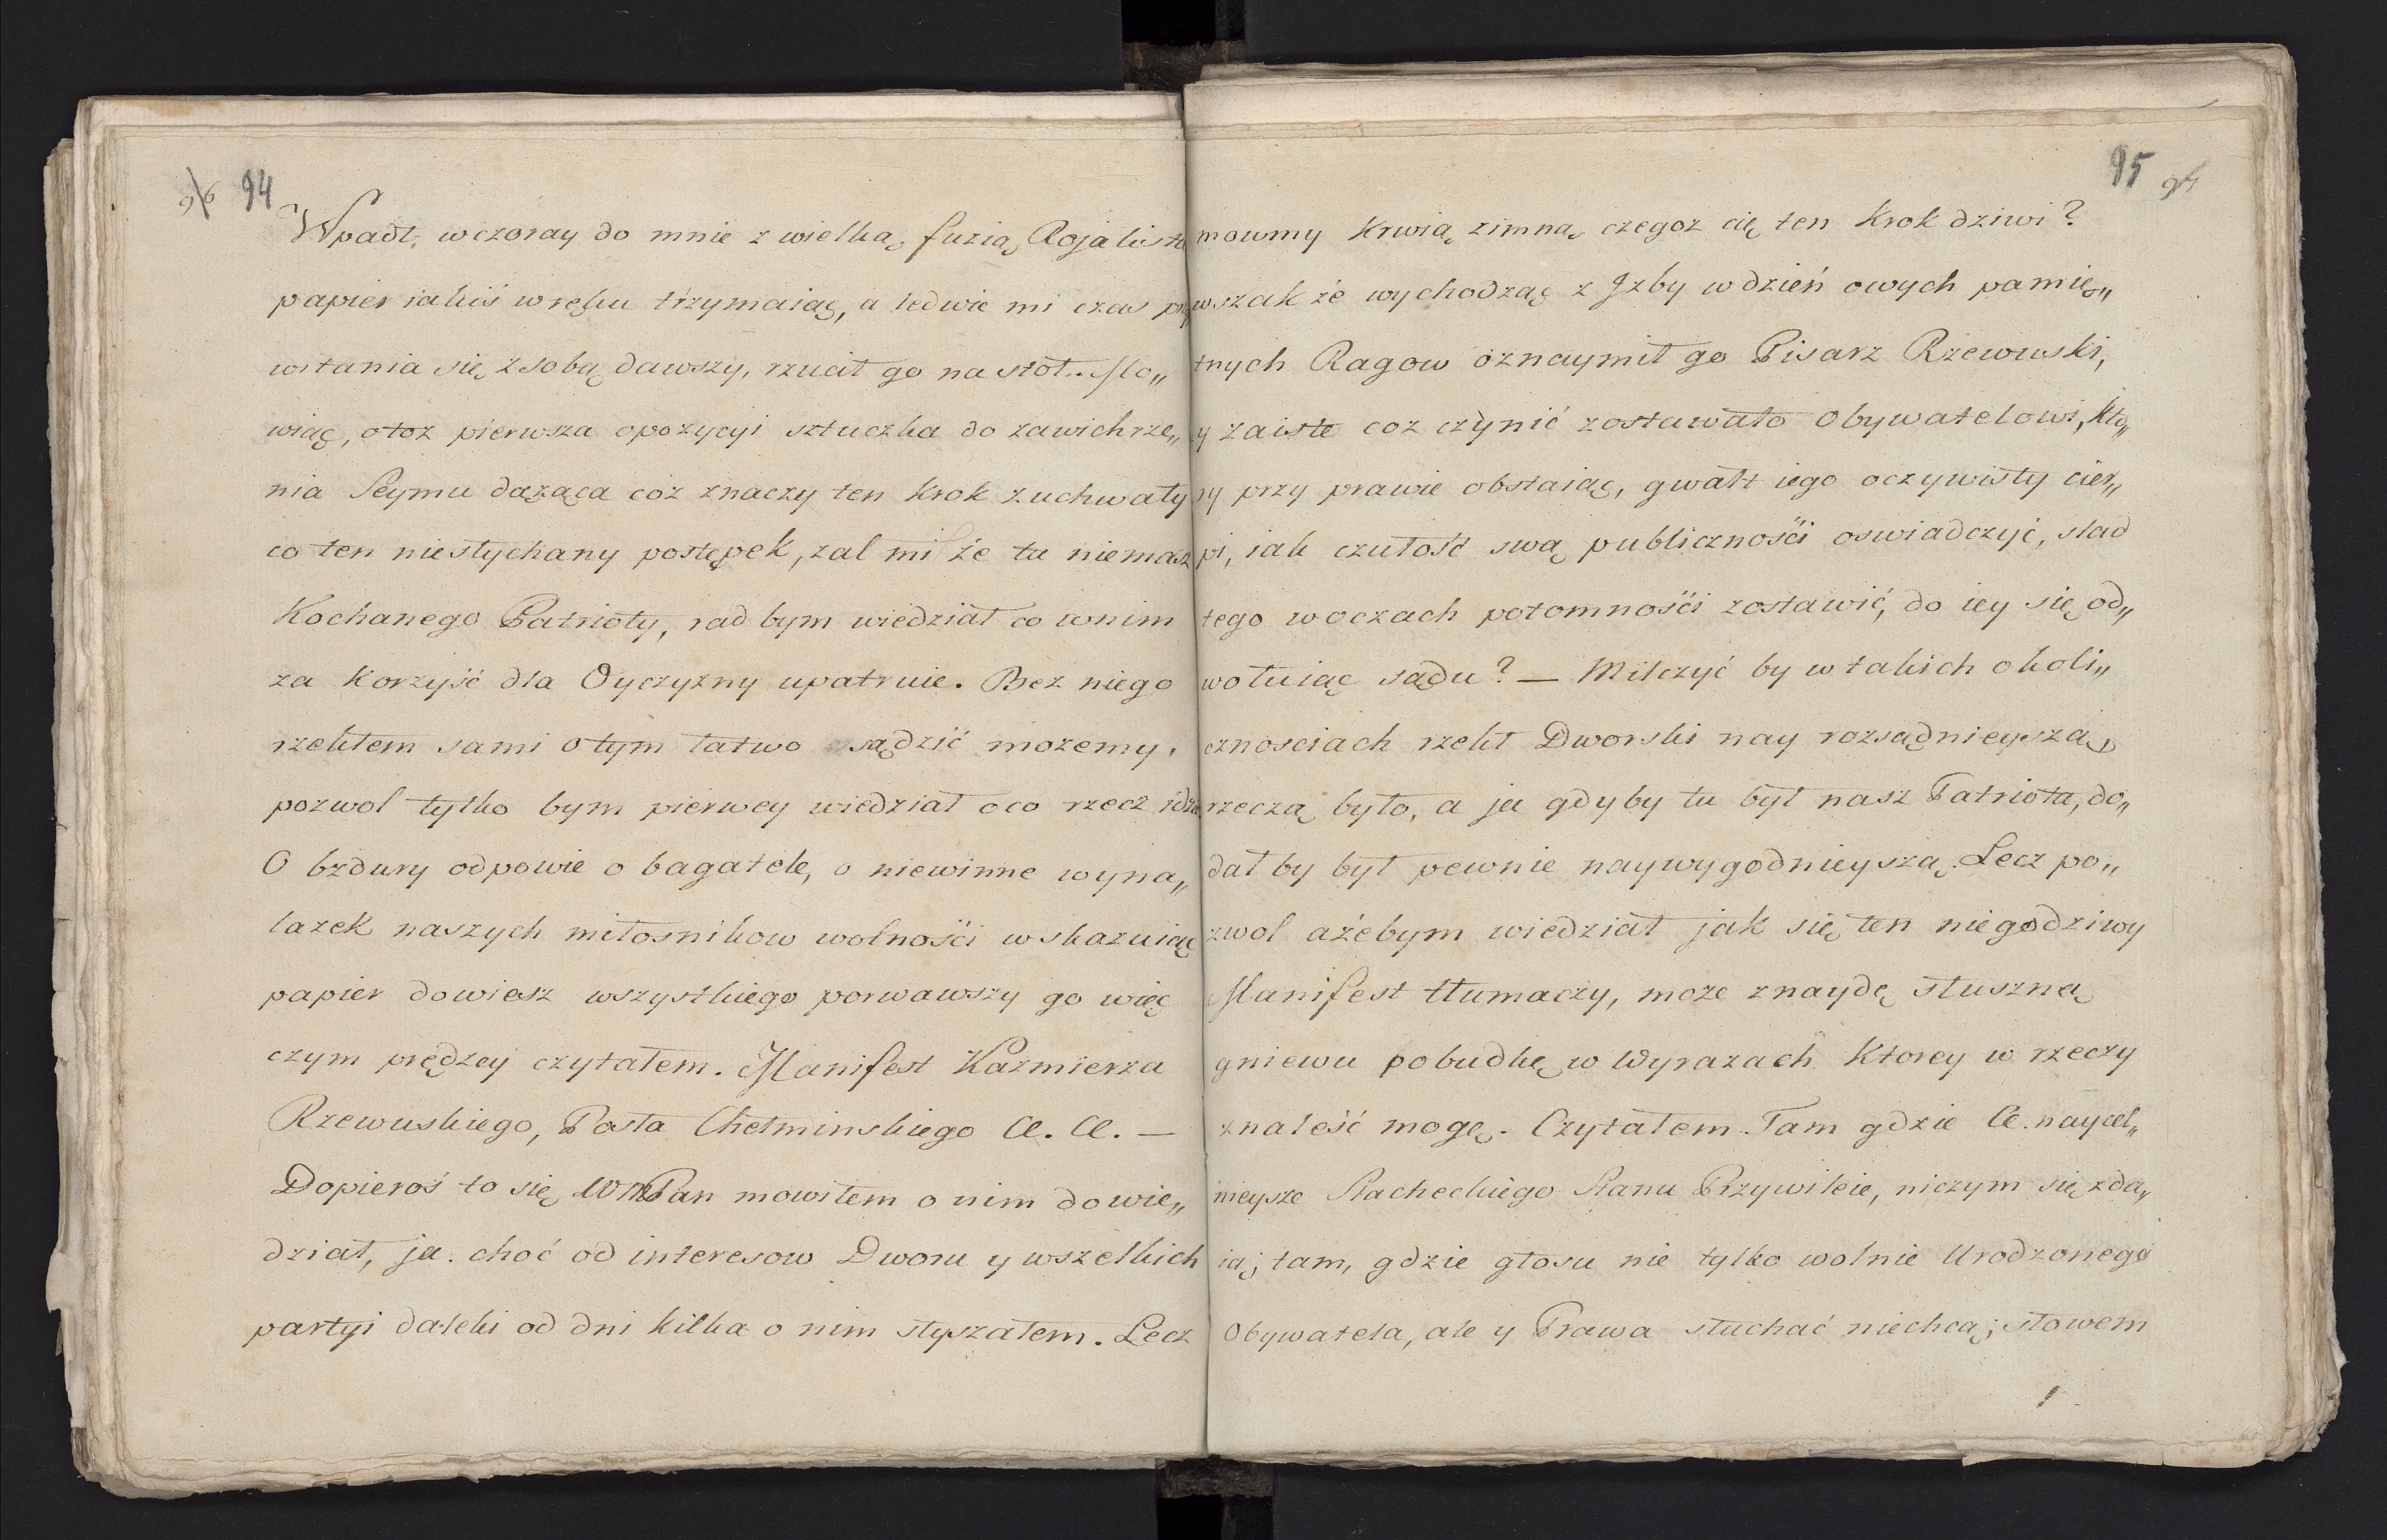 96 94
Wpadł wczoray do mnie z wielką furią Rojalista
papier iakiś wręku trzymaiąc, a ledwie mi czas przy
witania się z sobą dawszy, rzucił go na stół. Mo„
wiąc, otoz pierwsza opozycyi sztuczka do zawichrze„
nia Seymu dążąca coż znaczy ten Krok zuchwały
co ten niesłychany postępek, zal mi że tu niemasz
Kochanego Patrioty, rad bym wiedział co wnim
za Korzyść dla Oyczyzny upatruie. Bez niego
rzekłem sami o tym łatwo sądzić możemy,
pozwol tylko bym pierwey wiedział oco rzecz idzie
O bzdury odpowie o bagatele, o niewinne wyna„
lazek naszych miłosnikow wolnośći wskazuiąc
papier dowiesz wszystkiego porwawszy go więc
czym prędzey czytałem. Manifest Kazmierza
Rzewuskiego, Posła Chełminskiego &. &. —
Dopieroś to się WMPan mowiłem o nim dowie„
dział, ja. choć od interesow Dworu y wszelkich
partyi daleki od dni kilka o nim słyszałem. Lecz
95 94
mowmy Krwią zimną czegoz cię ten Krok dziwi?
wszak że wychodząc z Jzby w dzień owych pamię„
tnych Ragow oznaymił go Pisarz Rzewuski,
y zaiste coz czynić zostawało Obywatelowi, Kto„
ry przy prawie obstaiąc, gwałt iego oczywisty cier„
pi, iak czułość swą publicznośći oswiadczyć, slad
tego w oczach potomnośći zostawić, do iey się od„
wołuiąc sądu? — Milczyć by w takich okoli„
cznosciach rzekł Dworski nay rozsądnieyszą
rzeczą było, a ja gdyby tu był nasz Patriota, do„
dał by był pewnie naywygodnieyszą. Lecz po„
zwol ażebym wiedział jak się ten niegodziwy
Manifest tłumaczy, może znaydę słuszną
gniewu pobudkę w Wyrazach Ktorey w rzeczy
znaleść mogę. Czytałem. Tam gdzie &. naycel„
nieysze Slacheckiego Stanu Przywileie, niczym się zda„
ią; tam, gdzie głosu nie tylko wolnie Urodzonego
Obywatela, ale y Prawa słuchać niechcą; słowem